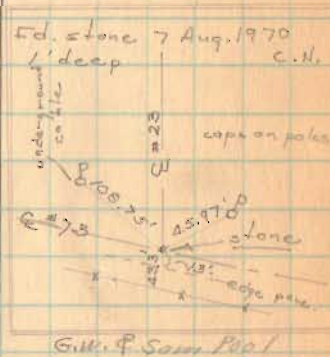 Ed. stone 7 Aug. 1970
1' deep
C.N.
underground
cable
℄ #23
caps on poles
108.75'
45.97'
℄ #73
stone
edge pave.
G.W. & Sam Pool